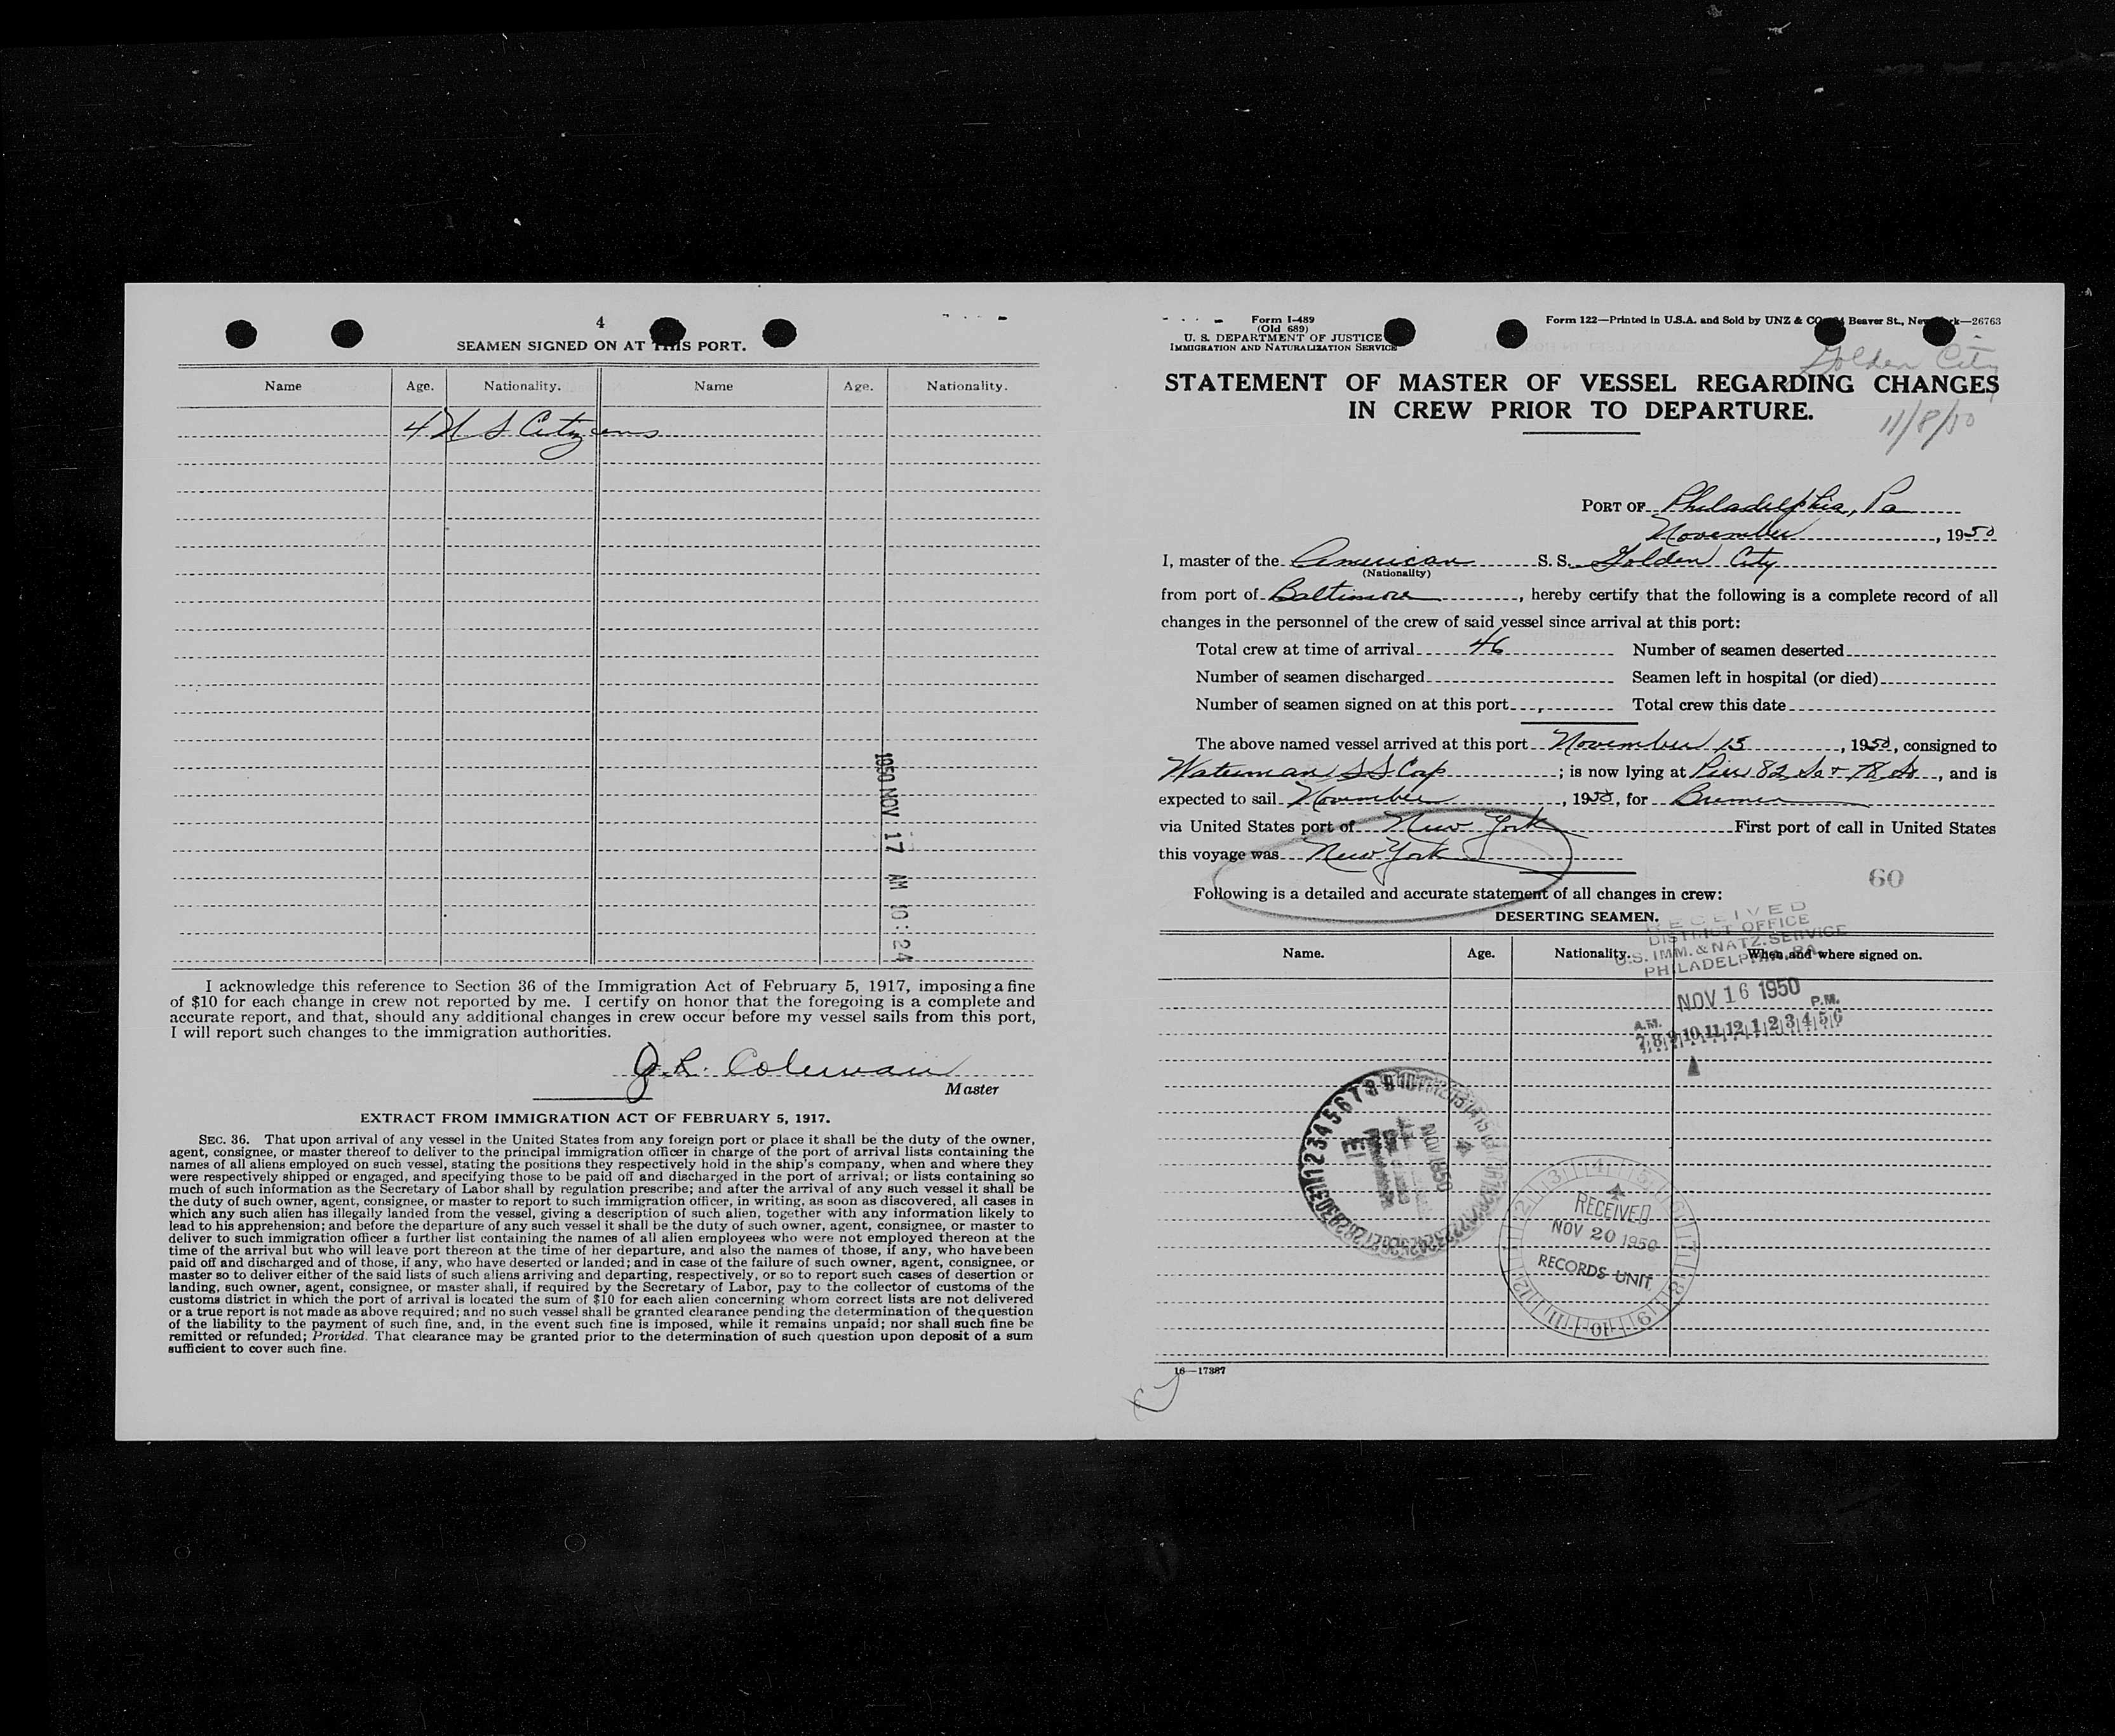 4
SEAMEN SIGNED ON AT THIS PORT.
Name Age. Nationality. Name Age. Nationality.
4 U S Citizens
1950 NOV 17 AM 10:24
I acknowledge this reference to Section 36 of the Immigration Act of February 5, 1917, imposing a fine
of $10 for each change in crew not reported by me. I certify on honor that the foregoing is a complete and
accurate report, and that, should any additional changes in crew occur before my vessel sails from this port,
I will report such changes to the immigration authorities.
J. R. Coleman
Master
EXTRACT FROM IMMIGRATION ACT OF FEBRUARY 5, 1917.
SEC. 36. That upon arrival of any vessel in the United States from any foreign port or place it shall be the duty of the owner,
agent, consignee, or master thereof to deliver to the principal immigration officer in charge of the port of arrival lists containing the
names of all aliens employed on such vessel, stating the positions they respectively hold in the ship's company, when and where they
were respectively shipped or engaged, and specifying those to be paid off and discharged in the port of arrival; or lists containing so
much of such information as the Secretary of Labor shall by regulation prescribe; and after the arrival of any such vessel it shall be
the duty of such owner, agent, consignee, or master to report to such immigration officer, in writing, as soon as discovered, all cases in
which any such alien has illegally landed from the vessel, giving a description of such alien, together with any information likely to
lead to his apprehension; and before the departure of any such vessel it shall be the duty of such owner, agent, consignee, or master to
deliver to such immigration officer a further list containing the names of all alien employees who were not employed thereon at the
time of the arrival but who will leave port thereon at the time of her departure, and also the names of those, if any, who have been
paid off and discharged and of those, if any, who have deserted or landed; and in case of the failure of such owner, agent, consignee, or
master so to deliver either of the said lists of such aliens arriving and departing, respectively, or so to report such cases of desertion or
landing, such owner, agent, consignee, or master shall, if required by the Secretary of Labor, pay to the collector of customs of the
customs district in which the port of arrival is located the sum of $10 for each alien concerning whom correct lists are not delivered
or a true report is not made as above required; and no such vessel shall be granted clearance pending the determination of the question
of the liability to the payment of such fine, and, in the event such fine is imposed, while it remains unpaid; nor shall such fine be
remitted or refunded; Provided. That clearance may be granted prior to the determination of such question upon deposit of a sum
sufficient to cover such fine.
Form I-489
(Old 689)
U. S. DEPARTMENT OF JUSTICE
IMMIGRATION AND NATURALIZATION SERVICE
Form 122—Printed in U.S.A. and Sold by UNZ & CO. Beaver St., New York—26763
Golden City
STATEMENT OF MASTER OF VESSEL REGARDING CHANGES
IN CREW PRIOR TO DEPARTURE.
11/8/50
PORT OF Philadelphia, Pa
November, 1950
I, master of the American S. S. Golden City
(Nationality)
from port of Baltimore, hereby certify that the following is a complete record of all
changes in the personnel of the crew of said vessel since arrival at this port:
Total crew at time of arrival 46 Number of seamen deserted
Number of seamen discharged Seamen left in hospital (or died)
Number of seamen signed on at this port Total crew this date
The above named vessel arrived at this port November 15, 1950, consigned to
Waterman SS Corp; is now lying at Pier 82 So + 78 So, and is
expected to sail November, 1950, for Bremen
via United States port of New York First port of call in United States
this voyage was New York
60
Following is a detailed and accurate statement of all changes in crew:
DESERTING SEAMEN.
RECEIVED
DISTRICT OFFICE
U.S. IMM. & NATZ. SERVICE
PHILADELPHIA, PA.
Name. Age. Nationality. When and where signed on.
NOV 16 1950
A.M. P.M.
7 8 9 10 11 12 1 2 3 4 5 6
NOV 1950
RECEIVED
NOV 20 1950
RECORDS UNIT
16—17387